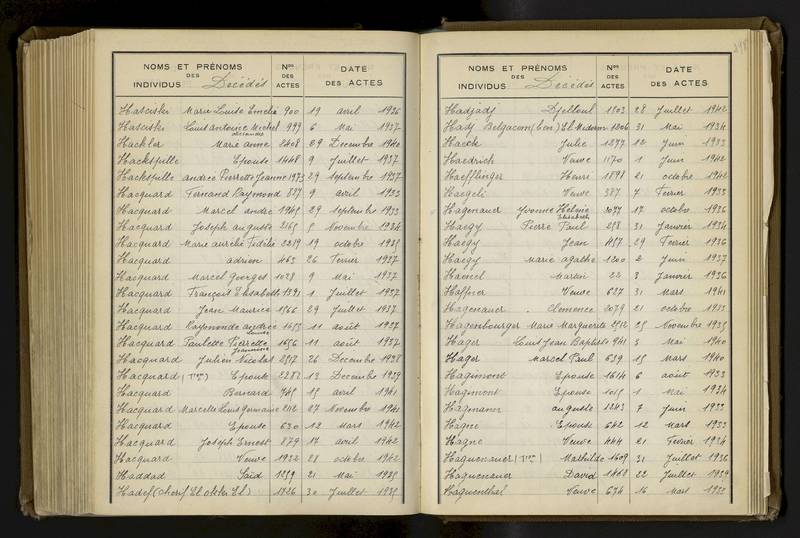 NOMS ET PRÉNOMS DES INDIVIDUS Décédés Nos DES ACTES DATE DES ACTES
Hascisker Marie Louise Emelie 900 19 avril 1936
Hascisker Louis Antoine Michel 999 6 Mai 1937
Hackler Marie anne 2408 29 Decembre 1940
Hackspille Epouse 1448 9 Juillet 1937
Hackspille andrée Pierrette Jeanne 1973 29 septembre 1937
Hacquard Fernand Raymond 887 9 avril 1933
Hacquard Marcel andre 1965 29 septembre 1933
Hacquard Joseph auguste 2165 5 Novembre 1934
Hacquard Marie aurelie Fidélie 2219 19 octobre 1935
Hacquard adrien 463 26 Fevrier 1937
Hacquard Marcel Georges 1028 9 Mai 1937
Hacquard François Elisabeth 1391 1 Juillet 1937
Hacquard Jean Maurice 1566 29 Juillet 1937
Hacquard Raymonde andrée Louise 1655 11 août 1937
Hacquard Paulette Pierrette Jeannine 1656 11 août 1937
Hacquard Julien Nicolas 2517 26 Decembre 1938
Hacquard Epouse 2288 13 Decembre 1939
Hacquard Bernard 765 15 avril 1941
Hacquard Marcelle Louis Germaine 2112 27 Novembre 1941
Hacquard Epouse 630 12 Mars 1942
Hacquard Joseph Ernest 879 17 avril 1942
Hacquard Veuve 1932 28 octobre 1942
Haddad Said 1259 21 Mai 1935
Hadef (Cherif 1726 30 Juillet 1935
NOMS ET PRÉNOMS DES INDIVIDUS Décédés Nos DES ACTES DATE DES ACTES
Hadjadj Djelloul 1303 28 Juillet 1942
Hadj Belgacem (ben) 1206 31 Mai 1934
Haeck Julie 1277 12 Juin 1933
Haedrich Veuve 1170 1 Juin 1942
Haefflinger Henri 1898 21 octobre 1942
Haegeli Veuve 387 7 Fevrier 1933
Hagenauer Yvonne Helene Elisabeth 2077 17 octobre 1936
Haegy Pierre Paul 258 31 Janvier 1934
Haegy Jean 457 29 Fevrier 1936
Haegy Marie agathe 1200 2 Juin 1937
Haenel Martin 22 3 Janvier 1936
Haffner Veuve 627 31 Mars 1941
Hagenauer Clemence 2079 21 octobre 1933
Hagenbourger Marie Marguerite 2512 25 Novembre 1935
Hager Louis Jean Baptiste 941 3 Mai 1940
Hager Marcel Paul 639 15 Mars 1940
Hagimont Epouse 1614 6 août 1933
Hagimont Epouse 1015 1 Mai 1934
Hagmann auguste 1243 7 Juin 1933
Hagne Epouse 642 12 Mars 1933
Hagne Veuve 444 21 Fevrier 1934
Haguenauer Mathilde 1609 31 Juillet 1936
Haguenauer David 1468 22 Juillet 1939
Haguenthal Veuve 674 16 Mars 1933